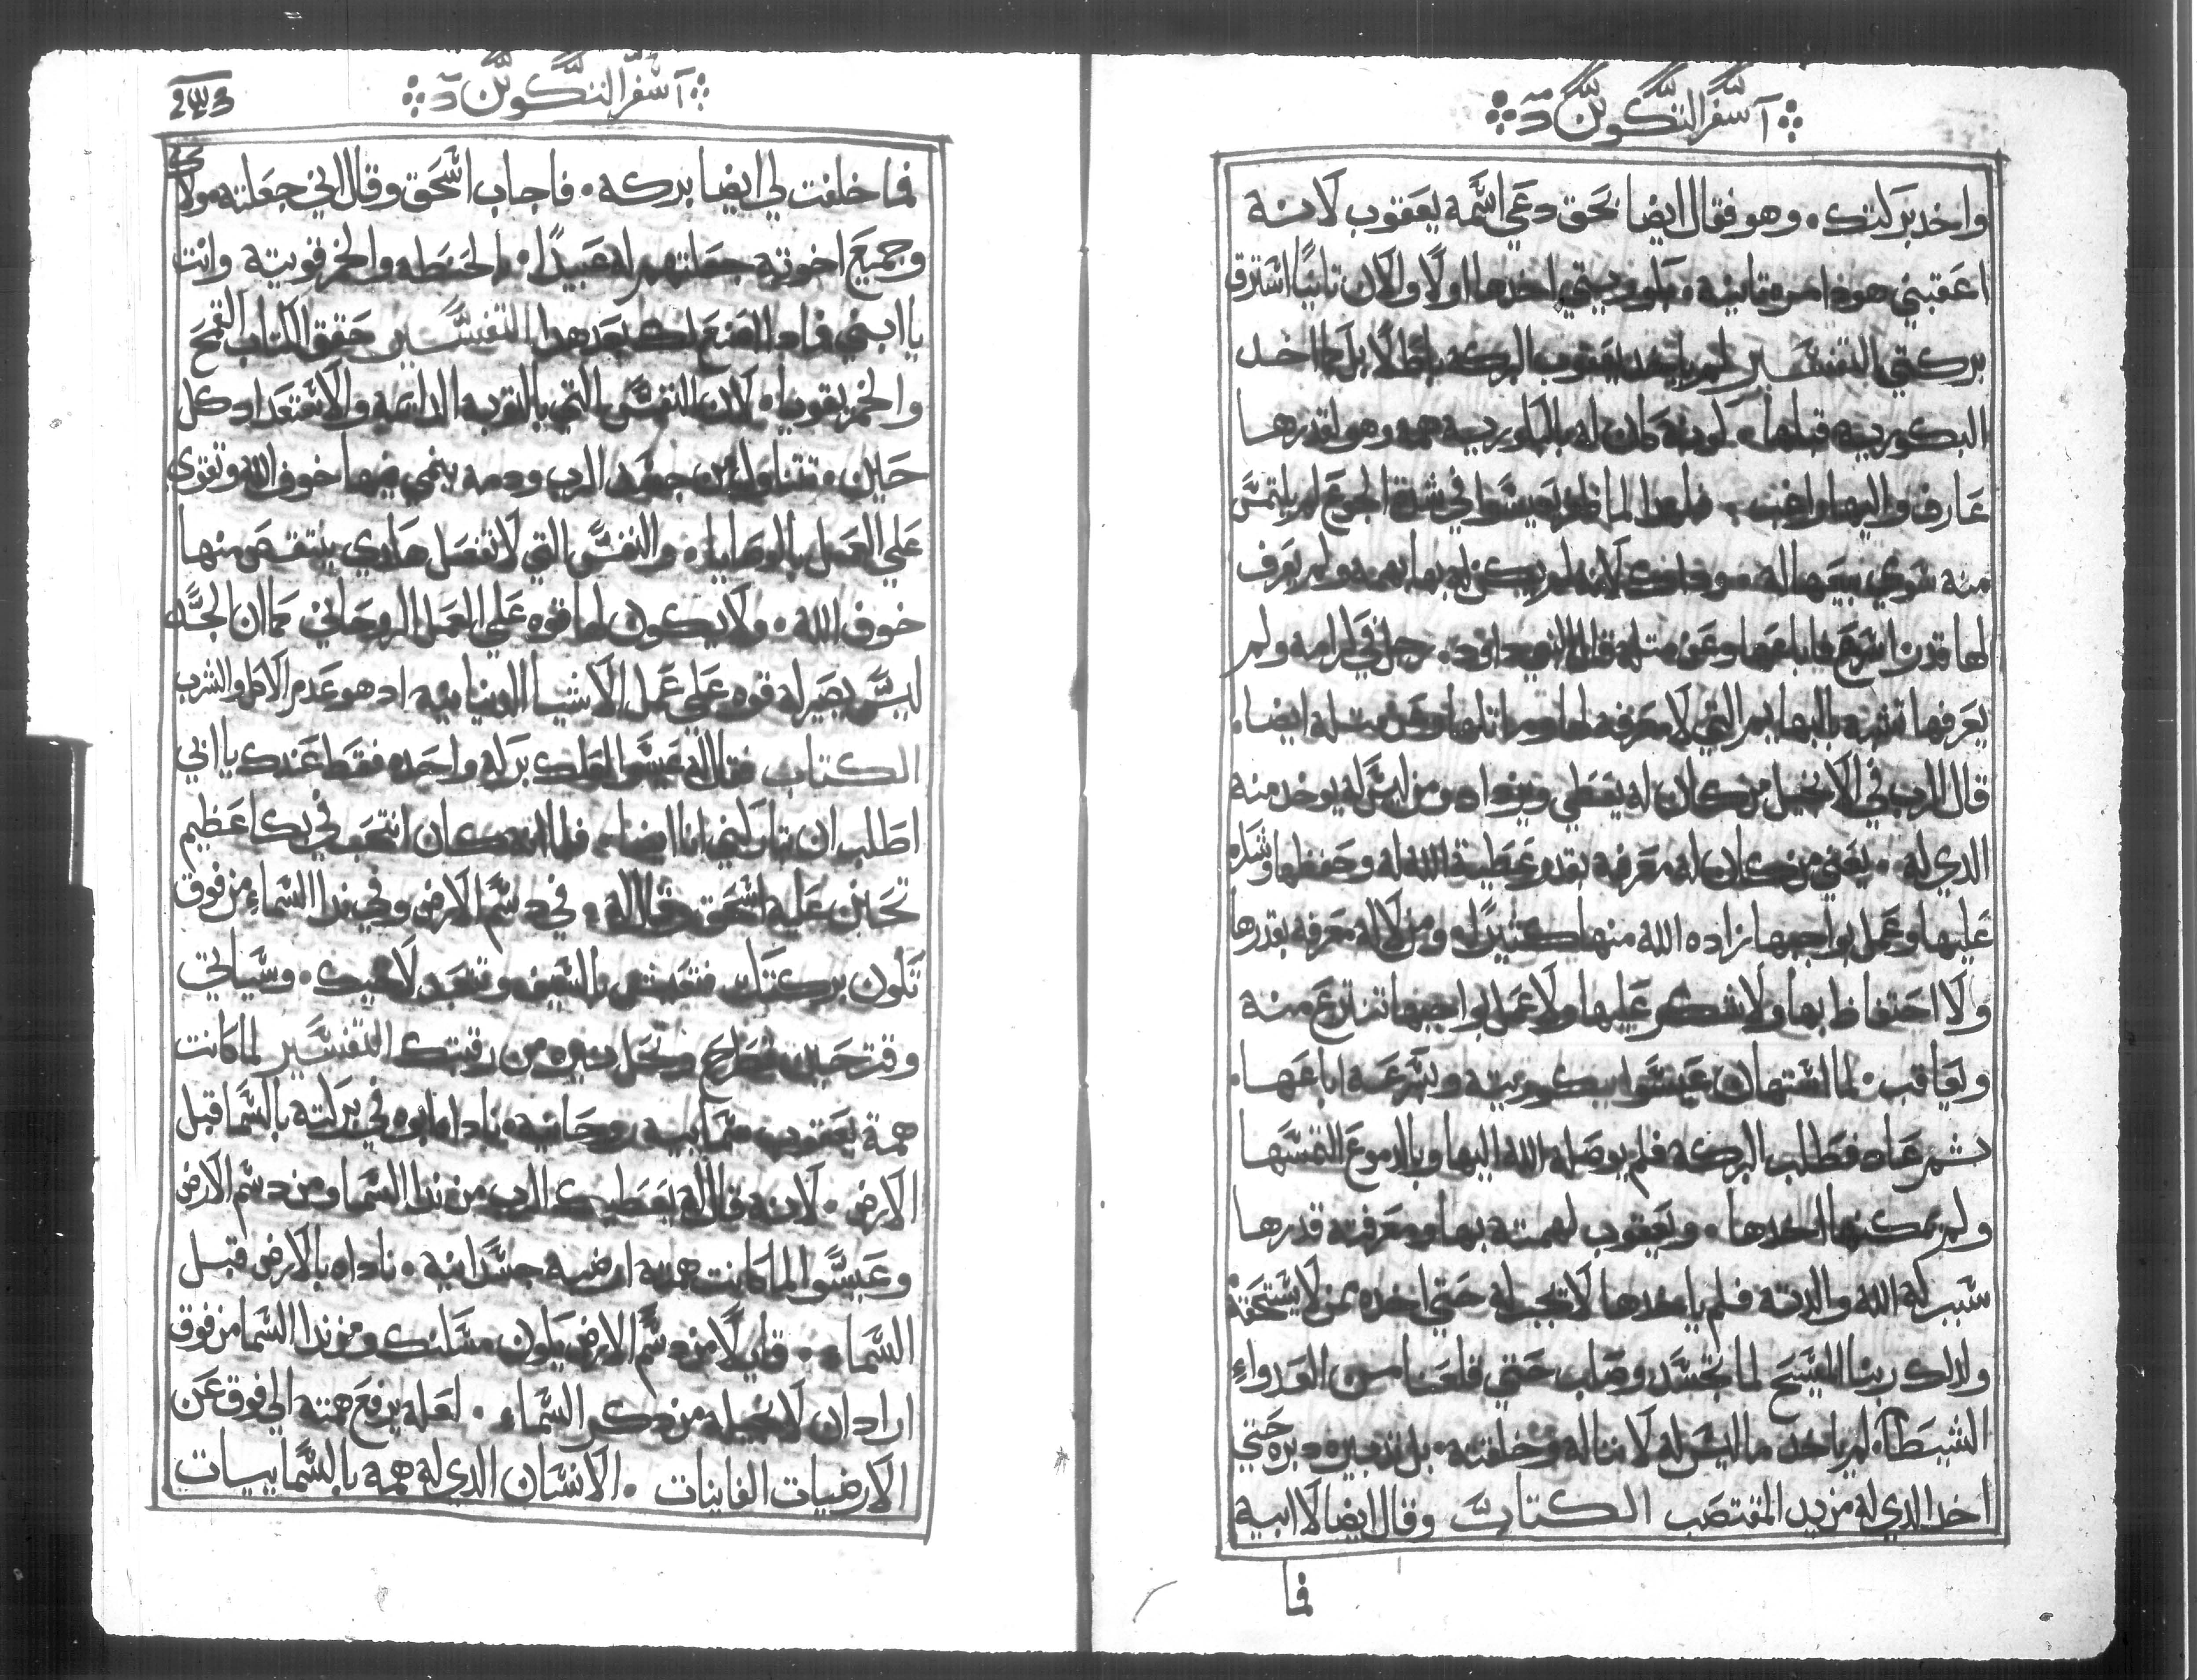 آ سفر التكوين د
واخد بركتك . وهو فقال ايضا بحق دعي اسمه يعقوب لانه
اعقبني هوذا مره تانيه . بكوريتي اخدها اولا والان تانيًا استرق
بركتي التفسير لم ياخد يعقوب البركه باطلا بل كما اخد
البكوريه قبلها . لونه كان له بالبكوريه همه وهو لقدرها
عارف واليها واضب . فلهدا لما ظفر بعيسوا في شدة الجوع لم يلتمس
منه سوي بيعها له . وداك لانه لم يكن له بها همه ولم يعرف
لها قدر اسرع فاباعها وعن متله قال النبي داود . رجل في كرامه ولم
يعرفها تشبه بالبهايم التي لا معرفه لها وماتلها وعن متله ايضا
قال الرب في الانجيل من كان له يعطي ويزداد ومن ليس له يوخد منه
الدي له . يعني من كان له معرفه بقدر عطية الله له وحفظها وشكره
عليها وعمل بواجبها زاده الله منها كثيرًا . ومن لا له معرفه بقدرها
ولا احتفاظ بها ولا شكر عليها ولا عمل بواجبها تنتزع منه
ويعاقب . لما استهان عيسوا ببكوريته وبسرعه اباعها .
تم عاد فطلب البركه فلم يوصله الله اليها وبالدموع التمسها
ولم يمكنه اخدها . ويعقوب لهمته بها ومعرفته قدرها
سبب له الله والدته فلم ياخدها لا تجب له حتي اخده ممن لا يستحقه
ولدلك ربنا المسيح لما تجسد وصلب حتي قلعنا من العدواء
الشيطان لم ياخد ما ليس له لاننا له وخلقته . بل تدبيره دبره حتي
اخد الدي له من يد المغتصب الكتاب وقال ايضا لابيه
فما
آ سفر التكوين د
243
فما خلفت لي ايضا بركه . فاجاب اسحق وقال اني جعلته مولاك
وجميع اخوته جعلتهم له عبيدًا . بالحنطه والخمر قويته وانت
يا ابني فمادا اصنع لك بعد هدا التفسير حقق الكتاب القمح
والخمر يقويا . لان النفس التي بالتوبه الدايمه والاستعداد كل
حين . تتناول من جسد الرب ودمه ينمي فيها خوف الله وتقوي
علي العمل بالوصايا . والنفس التي لا تفعل هادي ينتقص منها
خوف الله . ولا يكون لها قوه علي العمل الروحاني كما ان الجسد
ليس يصير له قوه علي عمل الاشيا الدنيانيه اد هو عدم الاكل والشرب
الكتاب فقال له عيسوا العلك بركه واحده فقط عندك يا ابي
اطلب ان تباركني انا ايضا . فلما انه كان انتحب في بكا عظيم
تحنن عليه اسحق وقال له . في دسم الارض وفي ندا السماء من فوق
تكون بركتك . فتعيش بالسيف وتتعبد لاخيك . وسياتي
وقت حين تطرح وتحل نيره من رقبتك التفسير لما كانت
همة يعقوب سماييه روحانيه . ناداه ابوه في بركته بالسما قبل
الارض . لانه قال له يعطيك الرب من ندا السما ومن دسم الارض
وعيسوا لما كانت همته ارضيه جسدانيه . ناداه بالارض قبل
السماء . قايلًا من دسم الارض يكون مسكنك ومن ندا السما من فوق
اراد ان لا يخيله من دكر السماء . لعله يرفع همته الي فوق عن
الارضيات الفانيات . الانسان الدي له همه بالسماييات